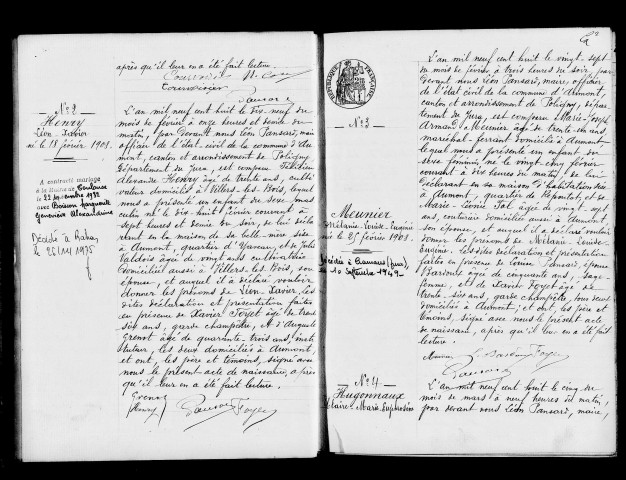 après qu'il leur en a été fait lecture.
N° 2
HENRY
Léon-Xavier
né le 18 février 1908.
A contracté mariage
à la Mairie de Toulouse
le 22 septembre 1932
avec Marguerite
Geneviève Alexandrine
Décédé à
le 26/11/1975
L'an mil neuf cent huit le dix-neuf du
mois de février à onze heures et demie du
matin, par devant nous Léon Pansard, maire
officier de l'état civil de la commune d'Au-
mont, canton et arrondissement de Poligny,
département du Jura, est comparu
Alexandre Henry âgé de trente ans, culti-
vateur domicilié à Villers-les-Bois, lequel
nous a présenté un enfant du sexe mas-
culin né le dix-huit février courant à
sept heures et demie du soir, de lui décla-
rant en la maison de sa belle-mère sise
à Aumont, quartier d' et de Julie
Valdois âgée de vingt ans cultivatrice
domiciliée aussi à Villers-les-Bois, son
épouse, et auquel il a déclaré vouloir
donner les prénoms de Léon-Xavier, les
dites déclaration et présentation faites
en présence de Xavier Foyet âgé de trente
six ans, garde champêtre, et d'Auguste
Grenot âgé de quarante-trois ans,
les deux domiciliés à Aumont,
et ont, les père et témoins, signé avec
nous le présent acte de naissance, après
qu'il leur en a été fait lecture.
Grenot
Henry Pansard Foyet
REPUBLIQUE FRANÇAISE
N° 3
Meunier
Mélanie-Louise-Eugénie
née le 25 février 1908.
Décédée à (Jura)
le 10 Septembre 1949
L'an mil neuf cent huit le vingt-sept
du mois de février à trois heures du soir, par
devant nous Léon Pansard, maire, officier
de l'état civil de la commune d'Aumont,
canton et arrondissement de Poligny, dépar-
tement du Jura, est comparu Marie-Joseph
Armand Meunier âgé de trente-un ans,
maréchal-ferrant domicilié à Aumont
lequel nous a présenté un enfant du
sexe féminin, né le vingt-cinq février
courant à dix heures du matin, de lui
déclarant en sa maison d'habitation sise
à Aumont, quartier de et de
Marie-Léonie âgée de vingt-sept
ans, couturière domiciliée aussi à Aumont,
son épouse, et auquel il a déclaré vouloir
donner les prénoms de Mélanie-Louise-
Eugénie. Les dites déclaration et présentation
faites en présence de
Bardoux âgé de cinquante ans,
et de Xavier Foyet âgé de
trente-six ans, garde champêtre, tous deux
domiciliés à Aumont, et ont, les père et
témoins, signé avec nous le présent acte
de naissance, après qu'il leur en a été fait
lecture.
Meunier Bardoux Foyet
Pansard
N° 4
Hugonnaux
Claire-Marie-Euphrosine
L'an mil neuf cent huit le cinq du
mois de mars à neuf heures du matin,
par devant nous Léon Pansard, maire,